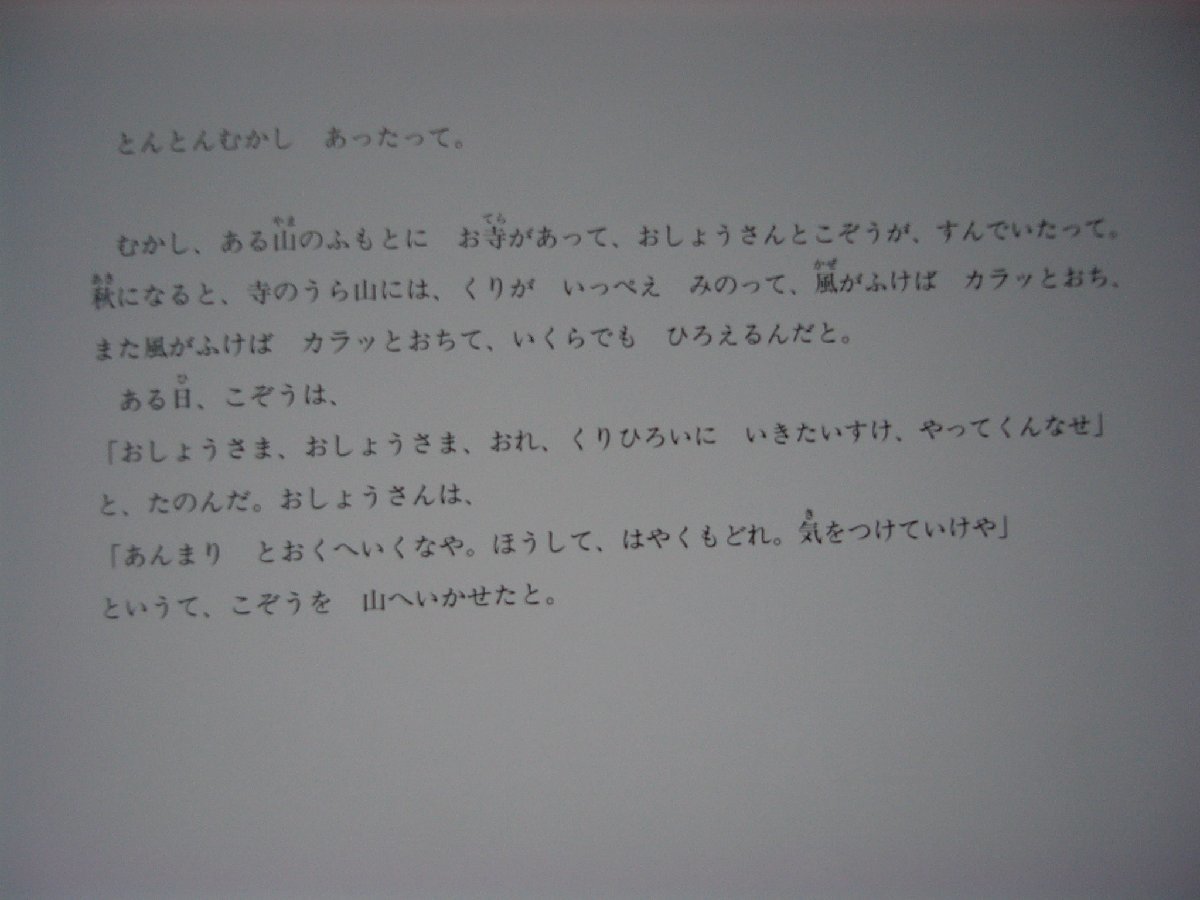 とんとんむかし　あったって。
むかし、ある山のふもとに　お寺があって、おしょうさんとこぞうが、すんでいたって。
秋になると、寺のうら山には、くりが　いっぺえ　みのって、風がふけば　カラッとおち、
また風がふけば　カラッとおちて、いくらでも　ひろえるんだと。
ある日、こぞうは、
「おしょうさま、おしょうさま、おれ、くりひろいに　いきたいすけ、やってくんなせ」
と、たのんだ。おしょうさんは、
「あんまり　とおくへいくなや。ほうして、はやくもどれ。気をつけていけや」
というて、こぞうを　山へいかせたと。